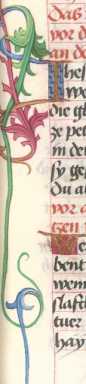 Das
vor d
an de
Jhes
wo
die gl
ze pet
in de
sy ge
Du al
vor a
tzen
We
bent
wem
slaft
tuer
hay